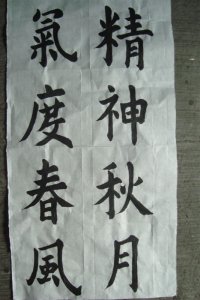 精神秋月
氣度春風